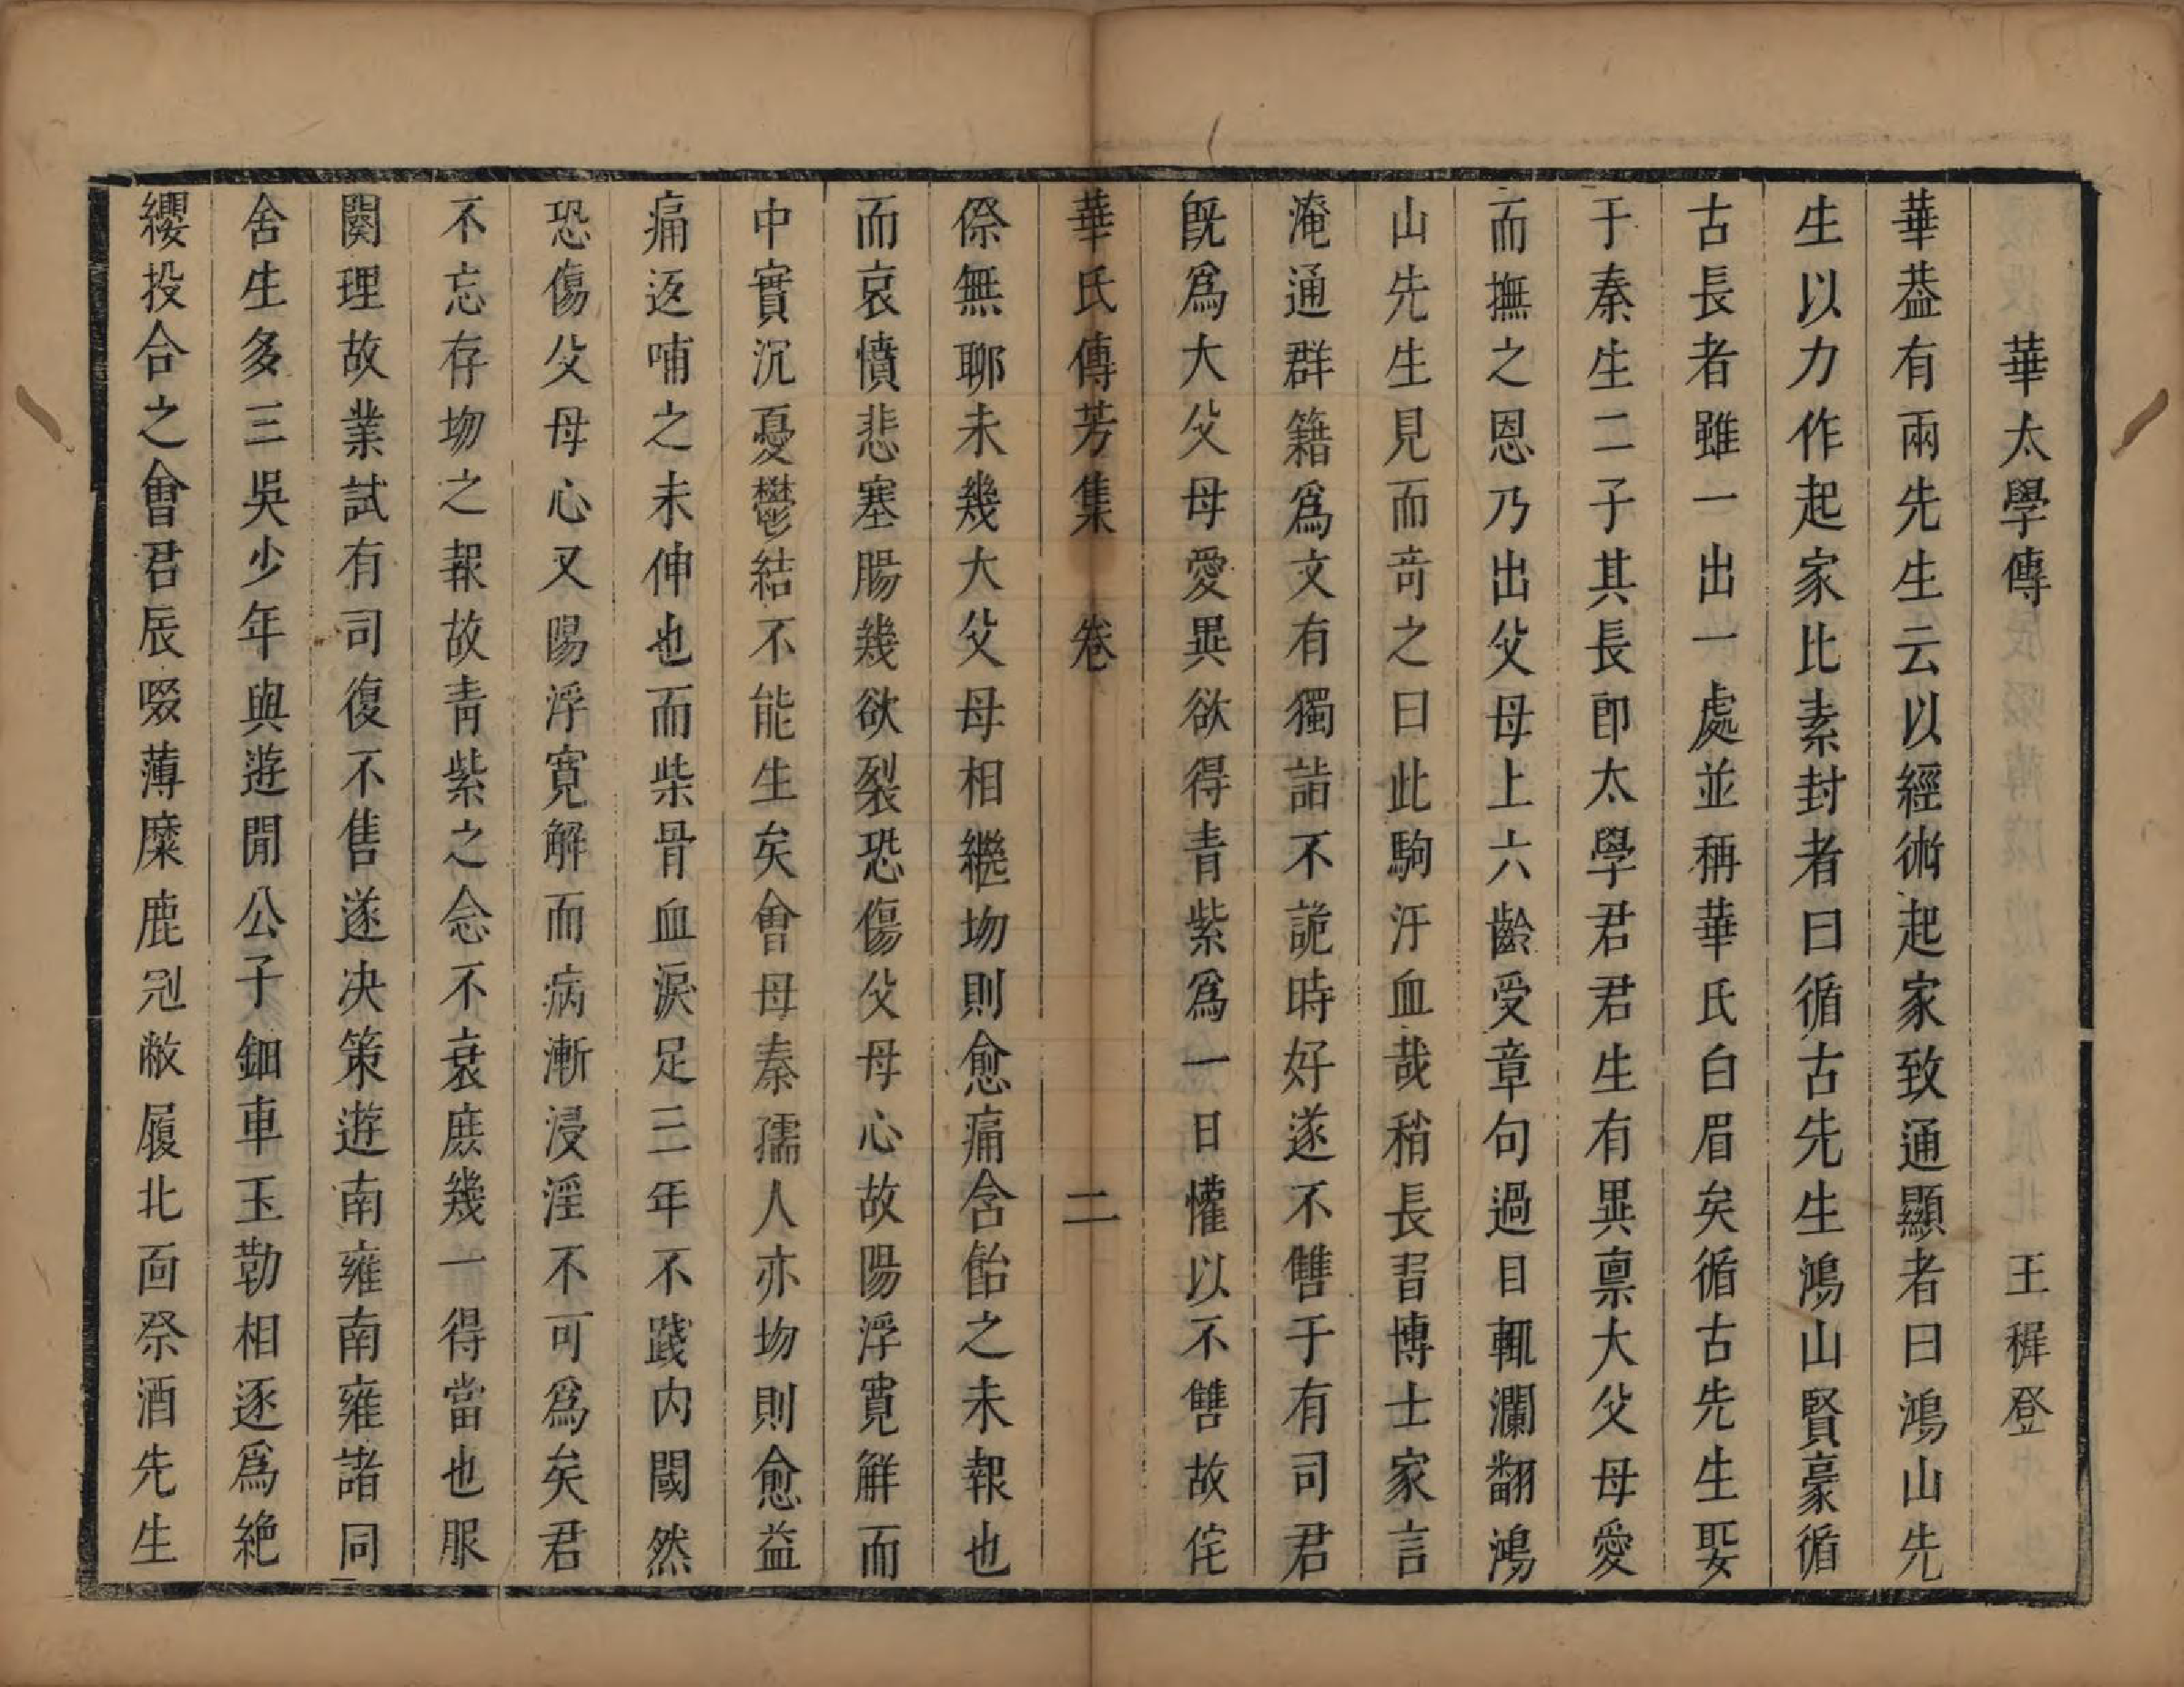 華太學傳　王穉登
華葢有兩先生云以經術起家致通顯者曰鴻山先
生以力作起家比素封者曰循古先生鴻山賢豪循
古長者雖一出一處並稱華氏白眉矣循古先生娶
于秦生二子其長卽太學君君生有異禀大父母愛
而撫之恩乃出父母上六齡受章句過目輒瀾翻鴻
山先生見而竒之曰此駒汗血哉稍長習博士家言
淹通群籍爲文有獨詣不詭時好遂不讐于有司君
旣爲大父母愛異欲得青紫爲一日懽以不讐故侘
華氏傳芳集　卷　二
傺無聊未幾大父母相繼歾則愈痛含飴之未報也
而哀憤悲塞腸幾欲裂恐傷父母心故陽浮寬解而
中實沉憂鬱結不能生矣會母秦孺人亦歾則愈益
痛返哺之未伸也而柴骨血淚足三年不踐內閾然
恐傷父母心又陽浮寬解而病漸浸淫不可爲矣君
不忘存歾之報故青紫之念不衰庶幾一得當也服
闋理故業試有司復不售遂决策遊南雍南雍諸同
舍生多三吳少年與遊閒公子鈿車玉勒相逐爲絶
纓投合之會君辰啜薄糜鹿冠敝履北面祭酒先生